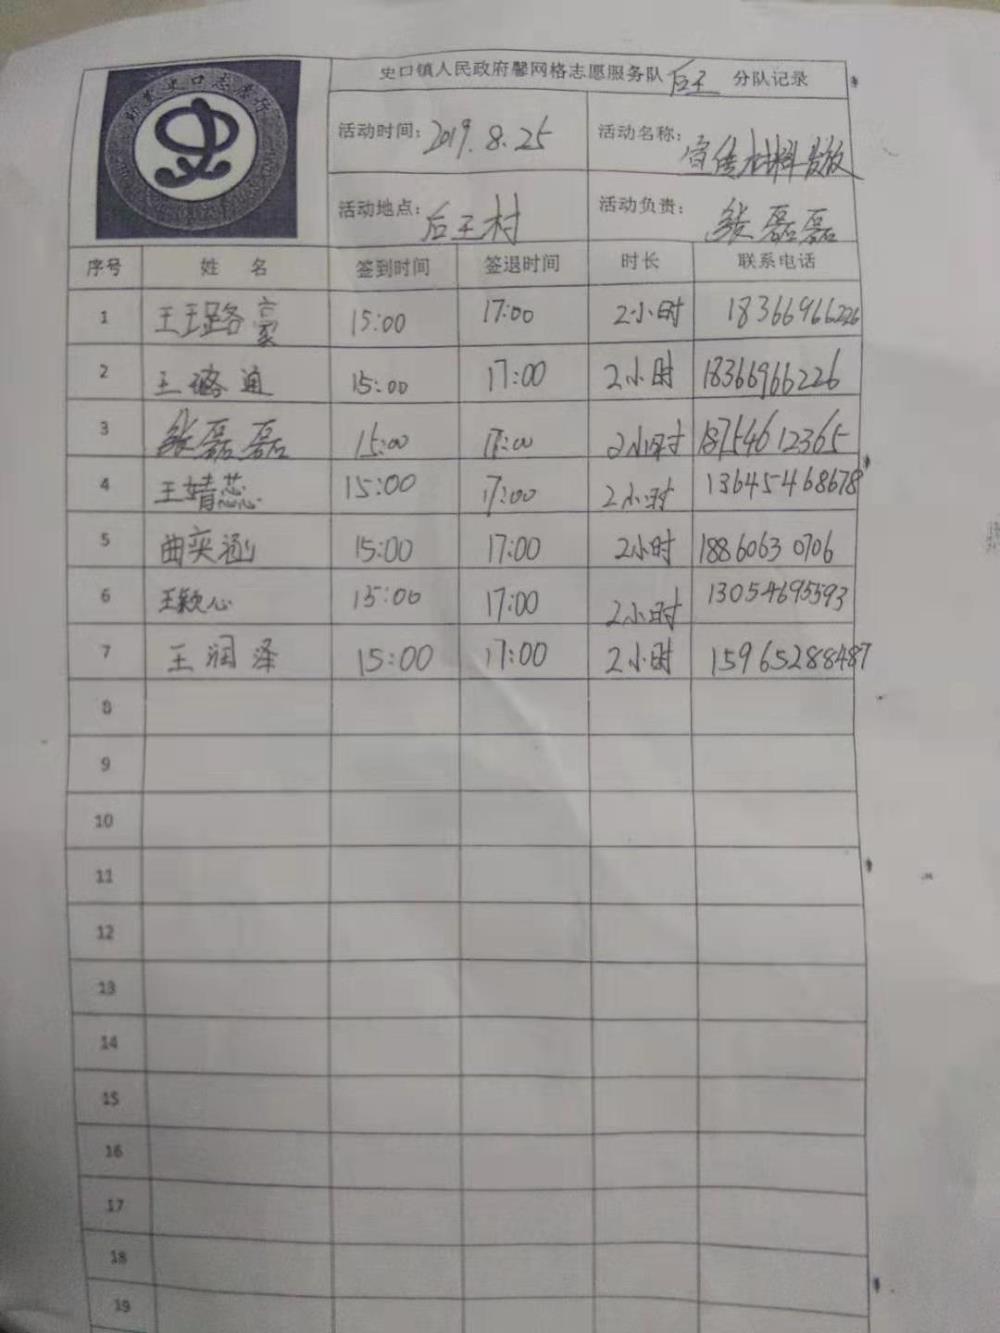 史口镇人民政府馨网格志愿服务队 后王 分队记录
活动时间: 2019.8.25 活动名称: 宣传材料发放
活动地点: 后王村 活动负责: 张磊磊
序号 姓 名 签到时间 签退时间 时长 联系电话
1 王璐豪 15:00 17:00 2小时 18366966226
2 王璐通 15:00 17:00 2小时 18366966226
3 张磊磊 15:00 17:00 2小时 18754612365
4 王婧蕊 15:00 17:00 2小时 13645468678
5 曲奕涵 15:00 17:00 2小时 18860630706
6 王颖心 15:00 17:00 2小时 13054695593
7 王润泽 15:00 17:00 2小时 15965288487
8
9
10
11
12
13
14
15
16
17
18
19